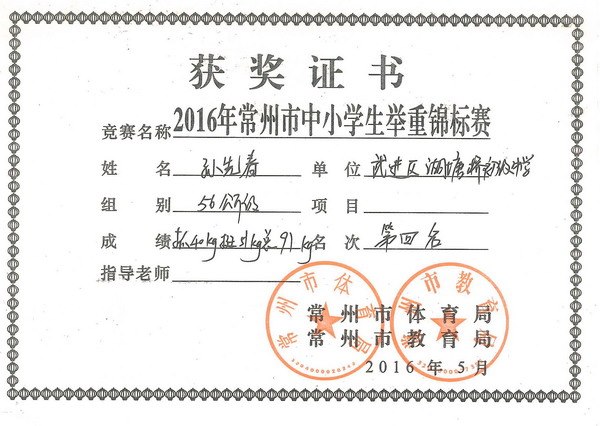 获奖证书
竞赛名称 2016年常州市中小学生举重锦标赛
姓名 孙先春 单位 武进区湖塘桥初级中学
组别 56公斤级 项目
成绩 抓40kg挺51kg总91kg 名次 第四名
指导老师
常州市体育局
常州市教育局
2016年5月
常州市体育局
常州市教育局